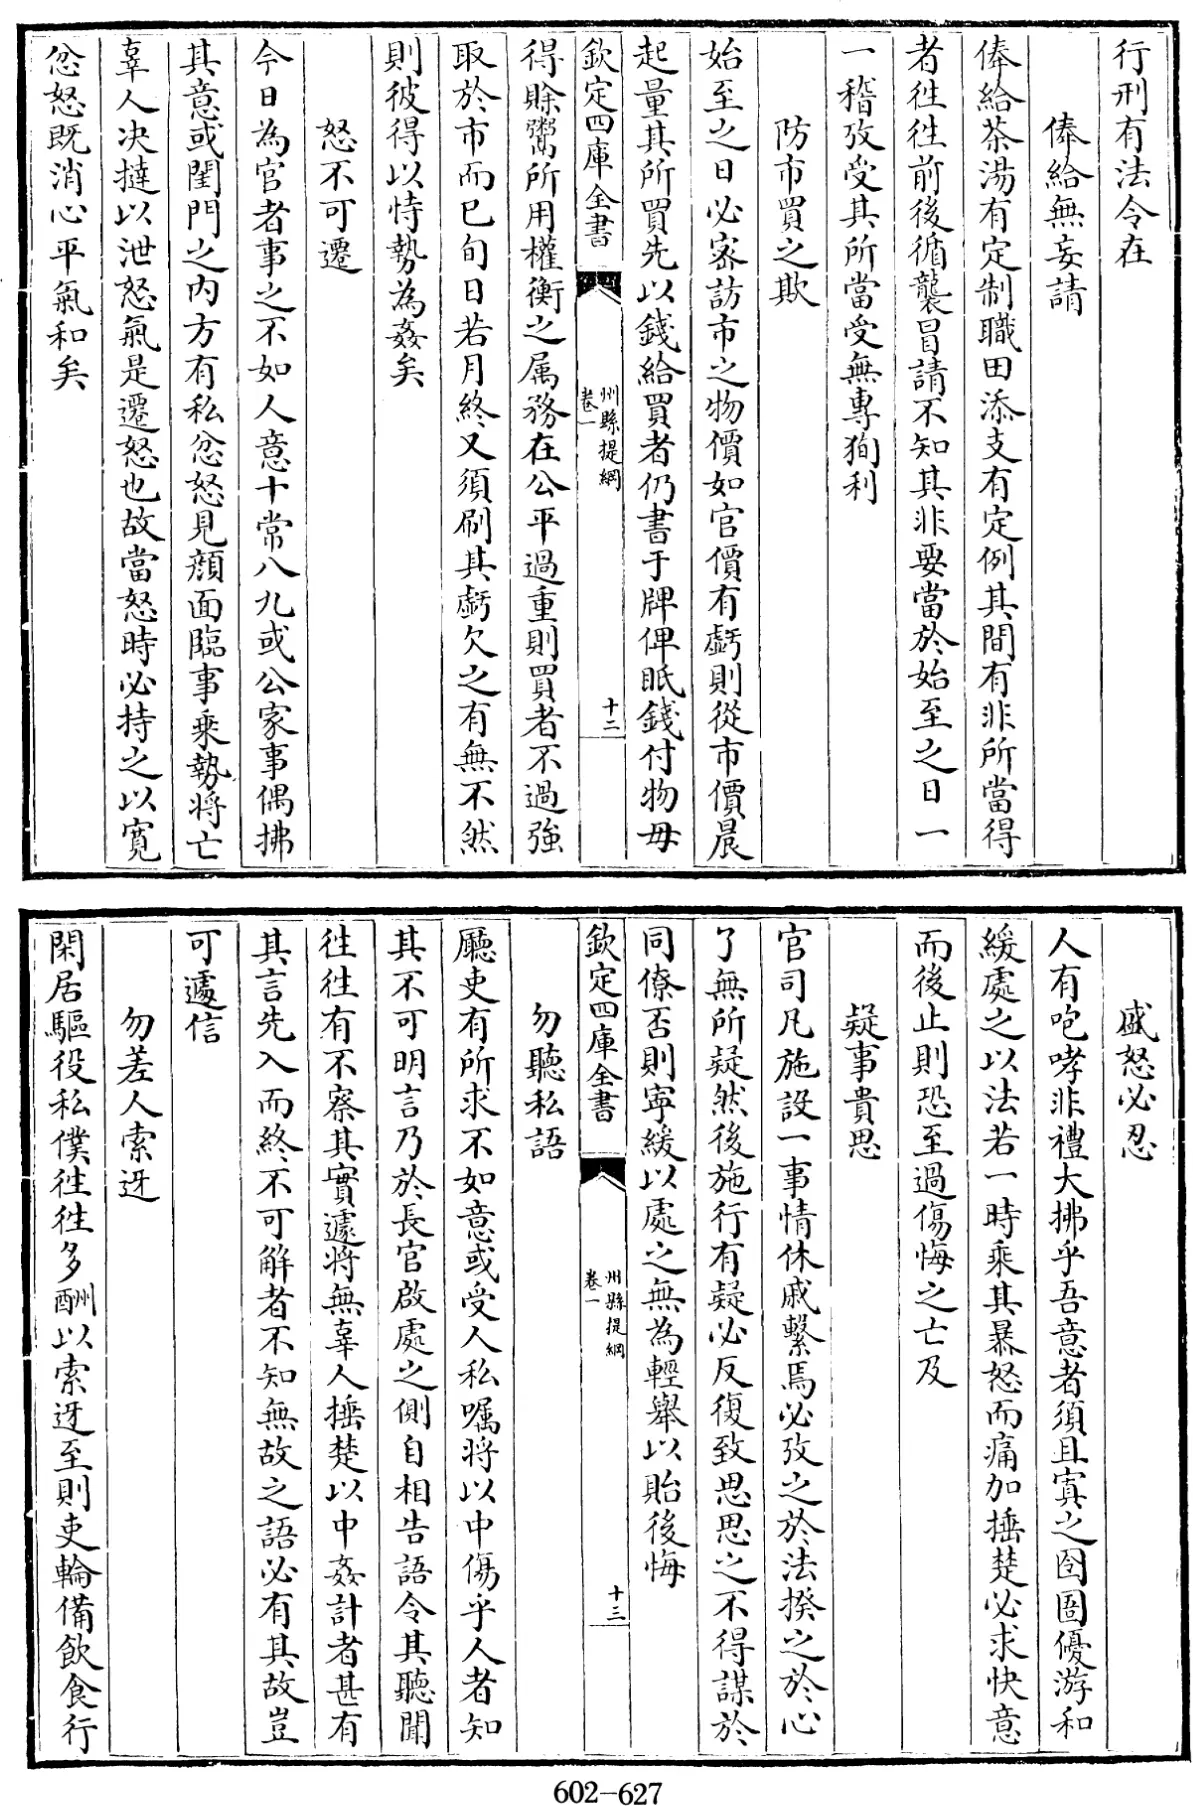 行刑有法令在
俸給無妄請
俸給茶湯有定制職田添支有定例其間有非所當得
者徃徃前後循襲冒請不知其非要當於始至之日一
一稽攷受其所當受無專狥利
防市買之欺
始至之日必宻訪市之物價如官價有虧則從市價晨
起量其所買先以錢給買者仍書于牌俾眂錢付物毋
欽定四庫全書
州縣提綱
卷一
十二
得賖鬻所用權衡之属務在公平過重則買者不過強
取於市而已旬日若月終又須刷其虧欠之有無不然
則彼得以恃勢為姦矣
怒不可遷
今日為官者事之不如人意十常八九或公家事偶拂
其意或閨門之内方有私忿怒見顔面臨事乗勢將亡
辜人决撻以泄怒氣是遷怒也故當怒時必持之以寛
忿怒既消心平氣和矣
盛怒必忍
人有咆哮非禮大拂乎吾意者須且寘之囹圄優游和
緩處之以法若一時乘其暴怒而痛加捶楚必求快意
而後止則恐至過傷悔之亡及
疑事貴思
官司凡施設一事情休戚繫焉必攷之於法揆之於心
了無所疑然後施行有疑必反復致思思之不得謀於
同僚否則寜緩以處之無為輕舉以貽後悔
欽定四庫全書
州縣提綱
卷一
十三
勿聽私語
廳吏有所求不如意或受人私囑將以中傷乎人者知
其不可明言乃於長官啟處之側自相告語令其聽聞
徃徃有不察其實遽將無辜人捶楚以中姦計者甚有
其言先入而終不可解者不知無故之語必有其故豈
可遽信
勿差人索迓
閑居驅役私僕徃徃多酬以索迓至則吏輪備飲食行
602-627